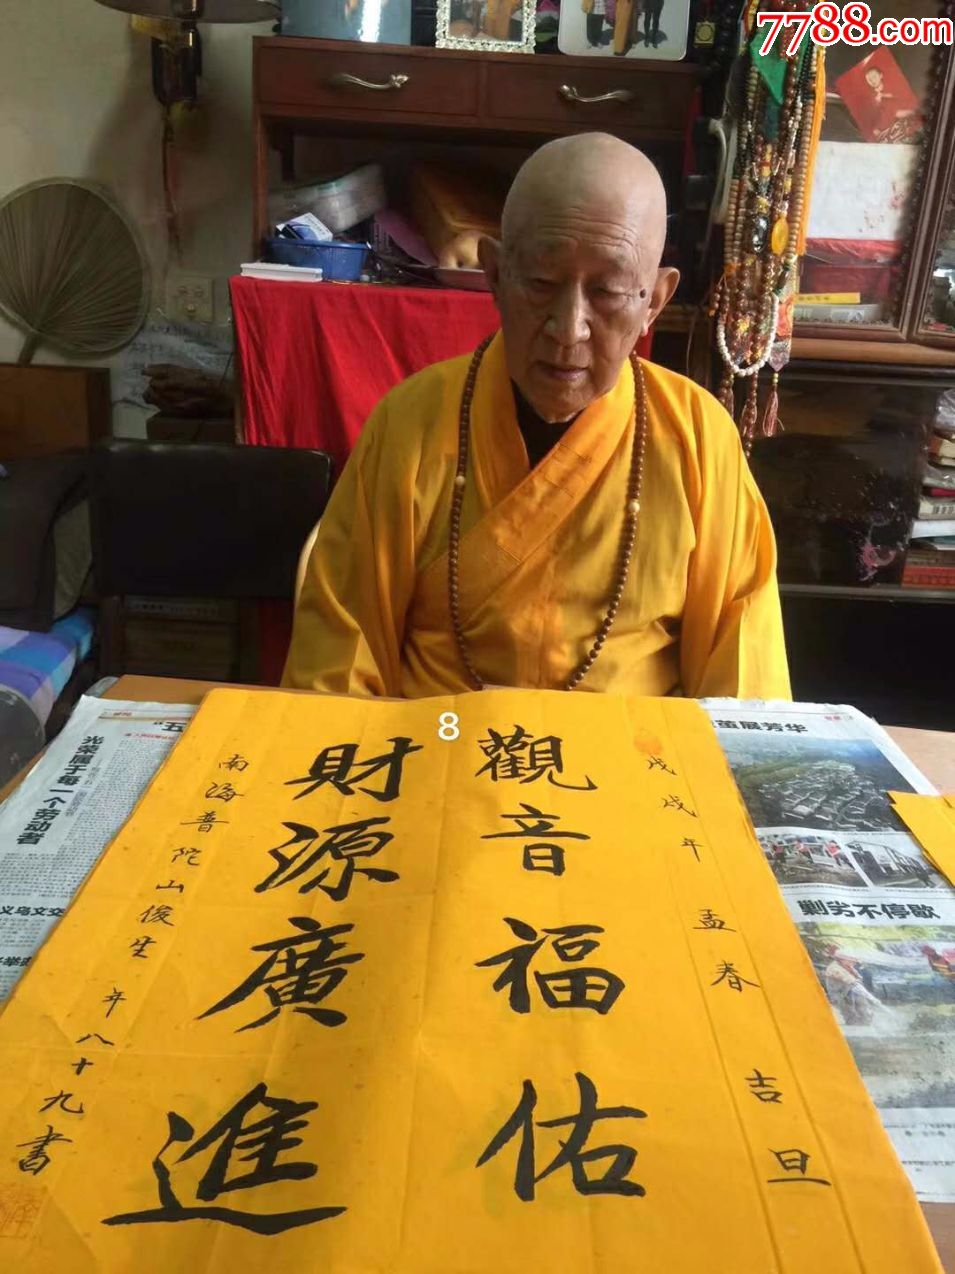 7788.com
8
戊戌年孟春吉旦
觀音福佑
財源廣進
南海普陀山俊生年八十九書
光荣属于每一个劳动者
义乌文交
茧展芳华
剿劣不停歇